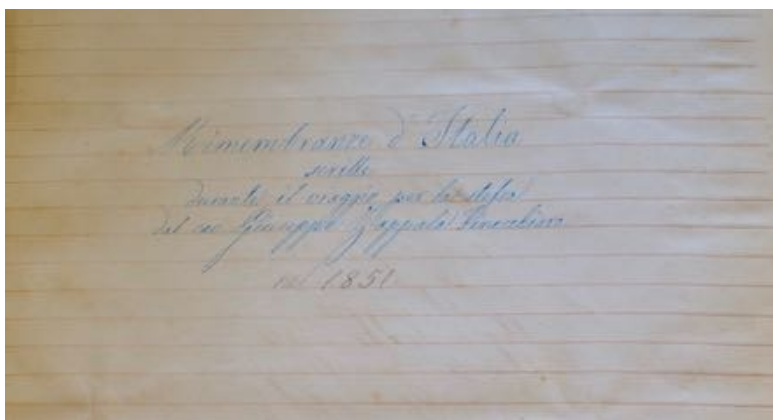 Rimembranze d'Italia
scritte
durante il viaggio per la stessa
dal cav Giuseppe Zappalà Finocchiaro
nel 1851